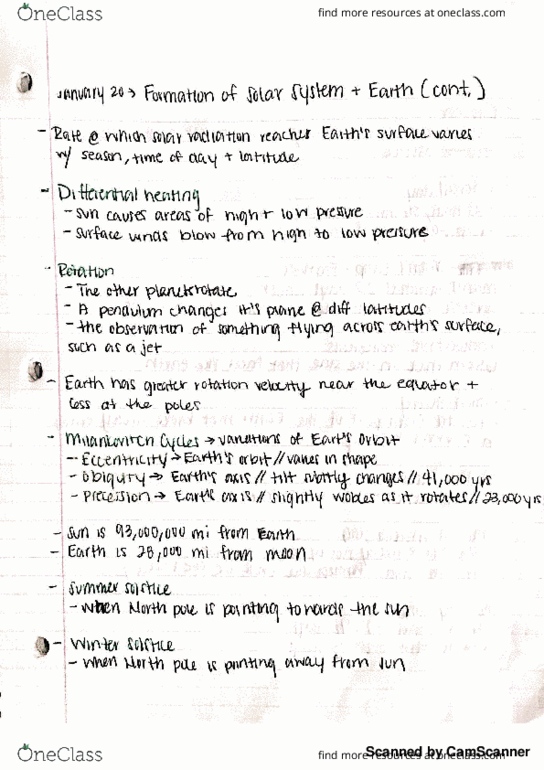 OneClass
find more resources at oneclass.com
January 20 → Formation of Solar System + Earth (cont.)
- Rate @ which solar radiation reaches Earth's surface varies
w/ season, time of day + latitude
- Differential heating
- Sun causes areas of high + low pressure
- Surface winds blow from high to low pressure
- Rotation
- The other planets rotate
- A pendulum changes it's plane @ diff latitudes
- the observation of something flying across earth's surface,
such as a jet
- Earth has greater rotation velocity near the equator +
less at the poles
- Milankovitch Cycles → variations of Earth's Orbit
- Eccentricity → Earth's orbit // varies in shape
- Obliquity → Earth's axis // tilt changes // 41,000 yrs
- Precession → Earth's axis // slightly wobles as it rotates // 23,000 yrs
- Sun is 93,000,000 mi from Earth
- Earth is 28,000 mi from moon
- Summer solstice
- when North pole is pointing towards the sun
- Winter solstice
- when North pole is pointing away from sun
OneClass
find more resources at oneclass.com
Scanned by CamScanner